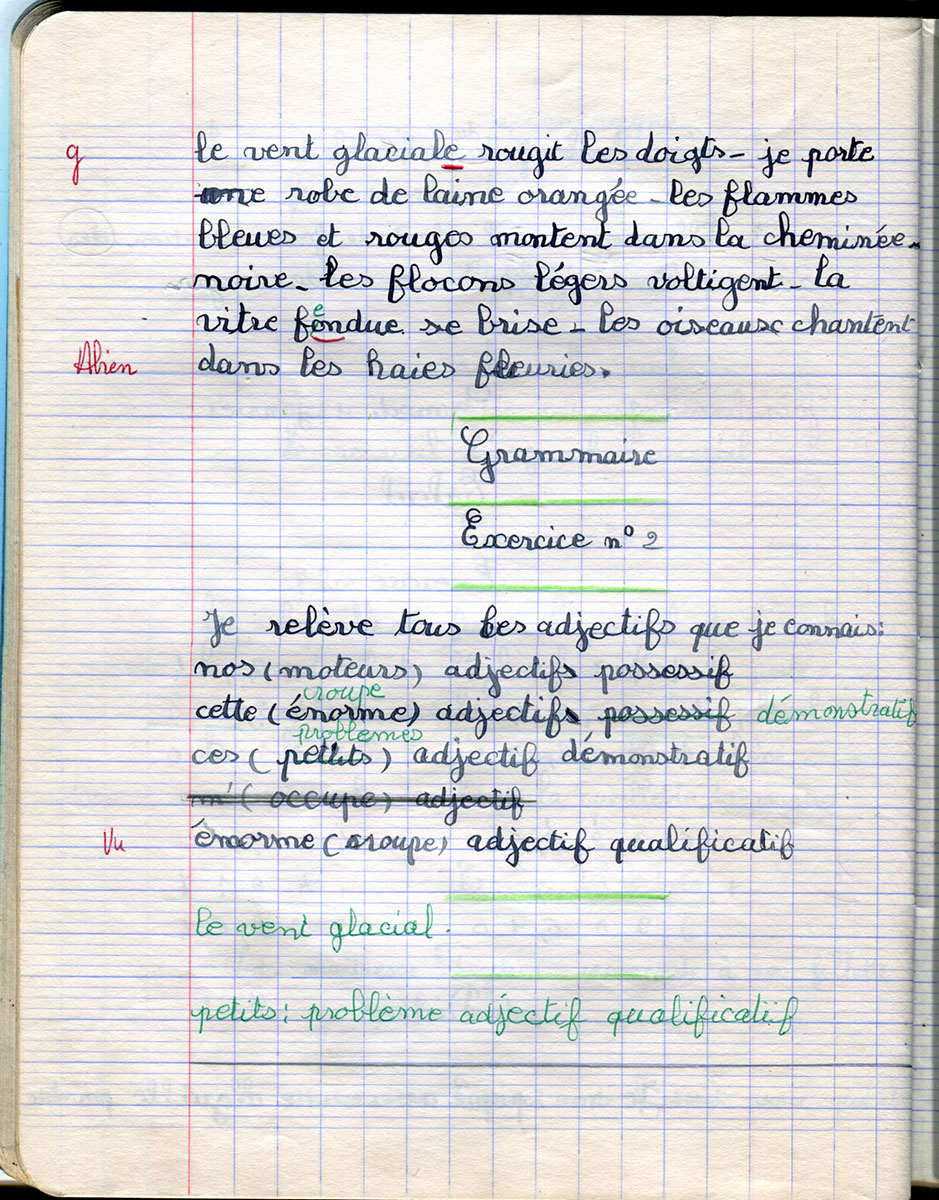 g le vent glaciale rougit les doigts - je porte
une robe de laine orangée - les flammes
bleues et rouges montent dans la cheminée -
noire - les flocons légers voltigent - la
e
vitre fondue se brise - les oiseaux chantent
dans les haies fleuries.
Grammaire
Exercice n° 2
Je relève tous les adjectifs que je connais:
nos (moteurs) adjectifs possessif
croupe
cette (énorme) adjectifs possessif démonstratif
problèmes
ces (petits) adjectif démonstratif
m' (occupe) adjectif
Vu énorme (croupe) adjectif qualificatif
le vent glacial.
petits: problème adjectif qualificatif